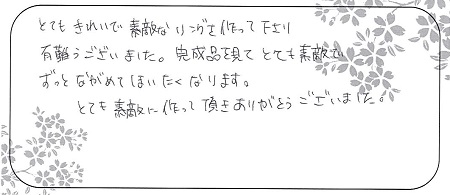 とても きれいで 素敵な リングを 作って 下さり
有難うございました。完成品を見て とても素敵で
ずっと ながめて はいたくなります。
とても 素敵に 作って 頂き ありがとう ございました。